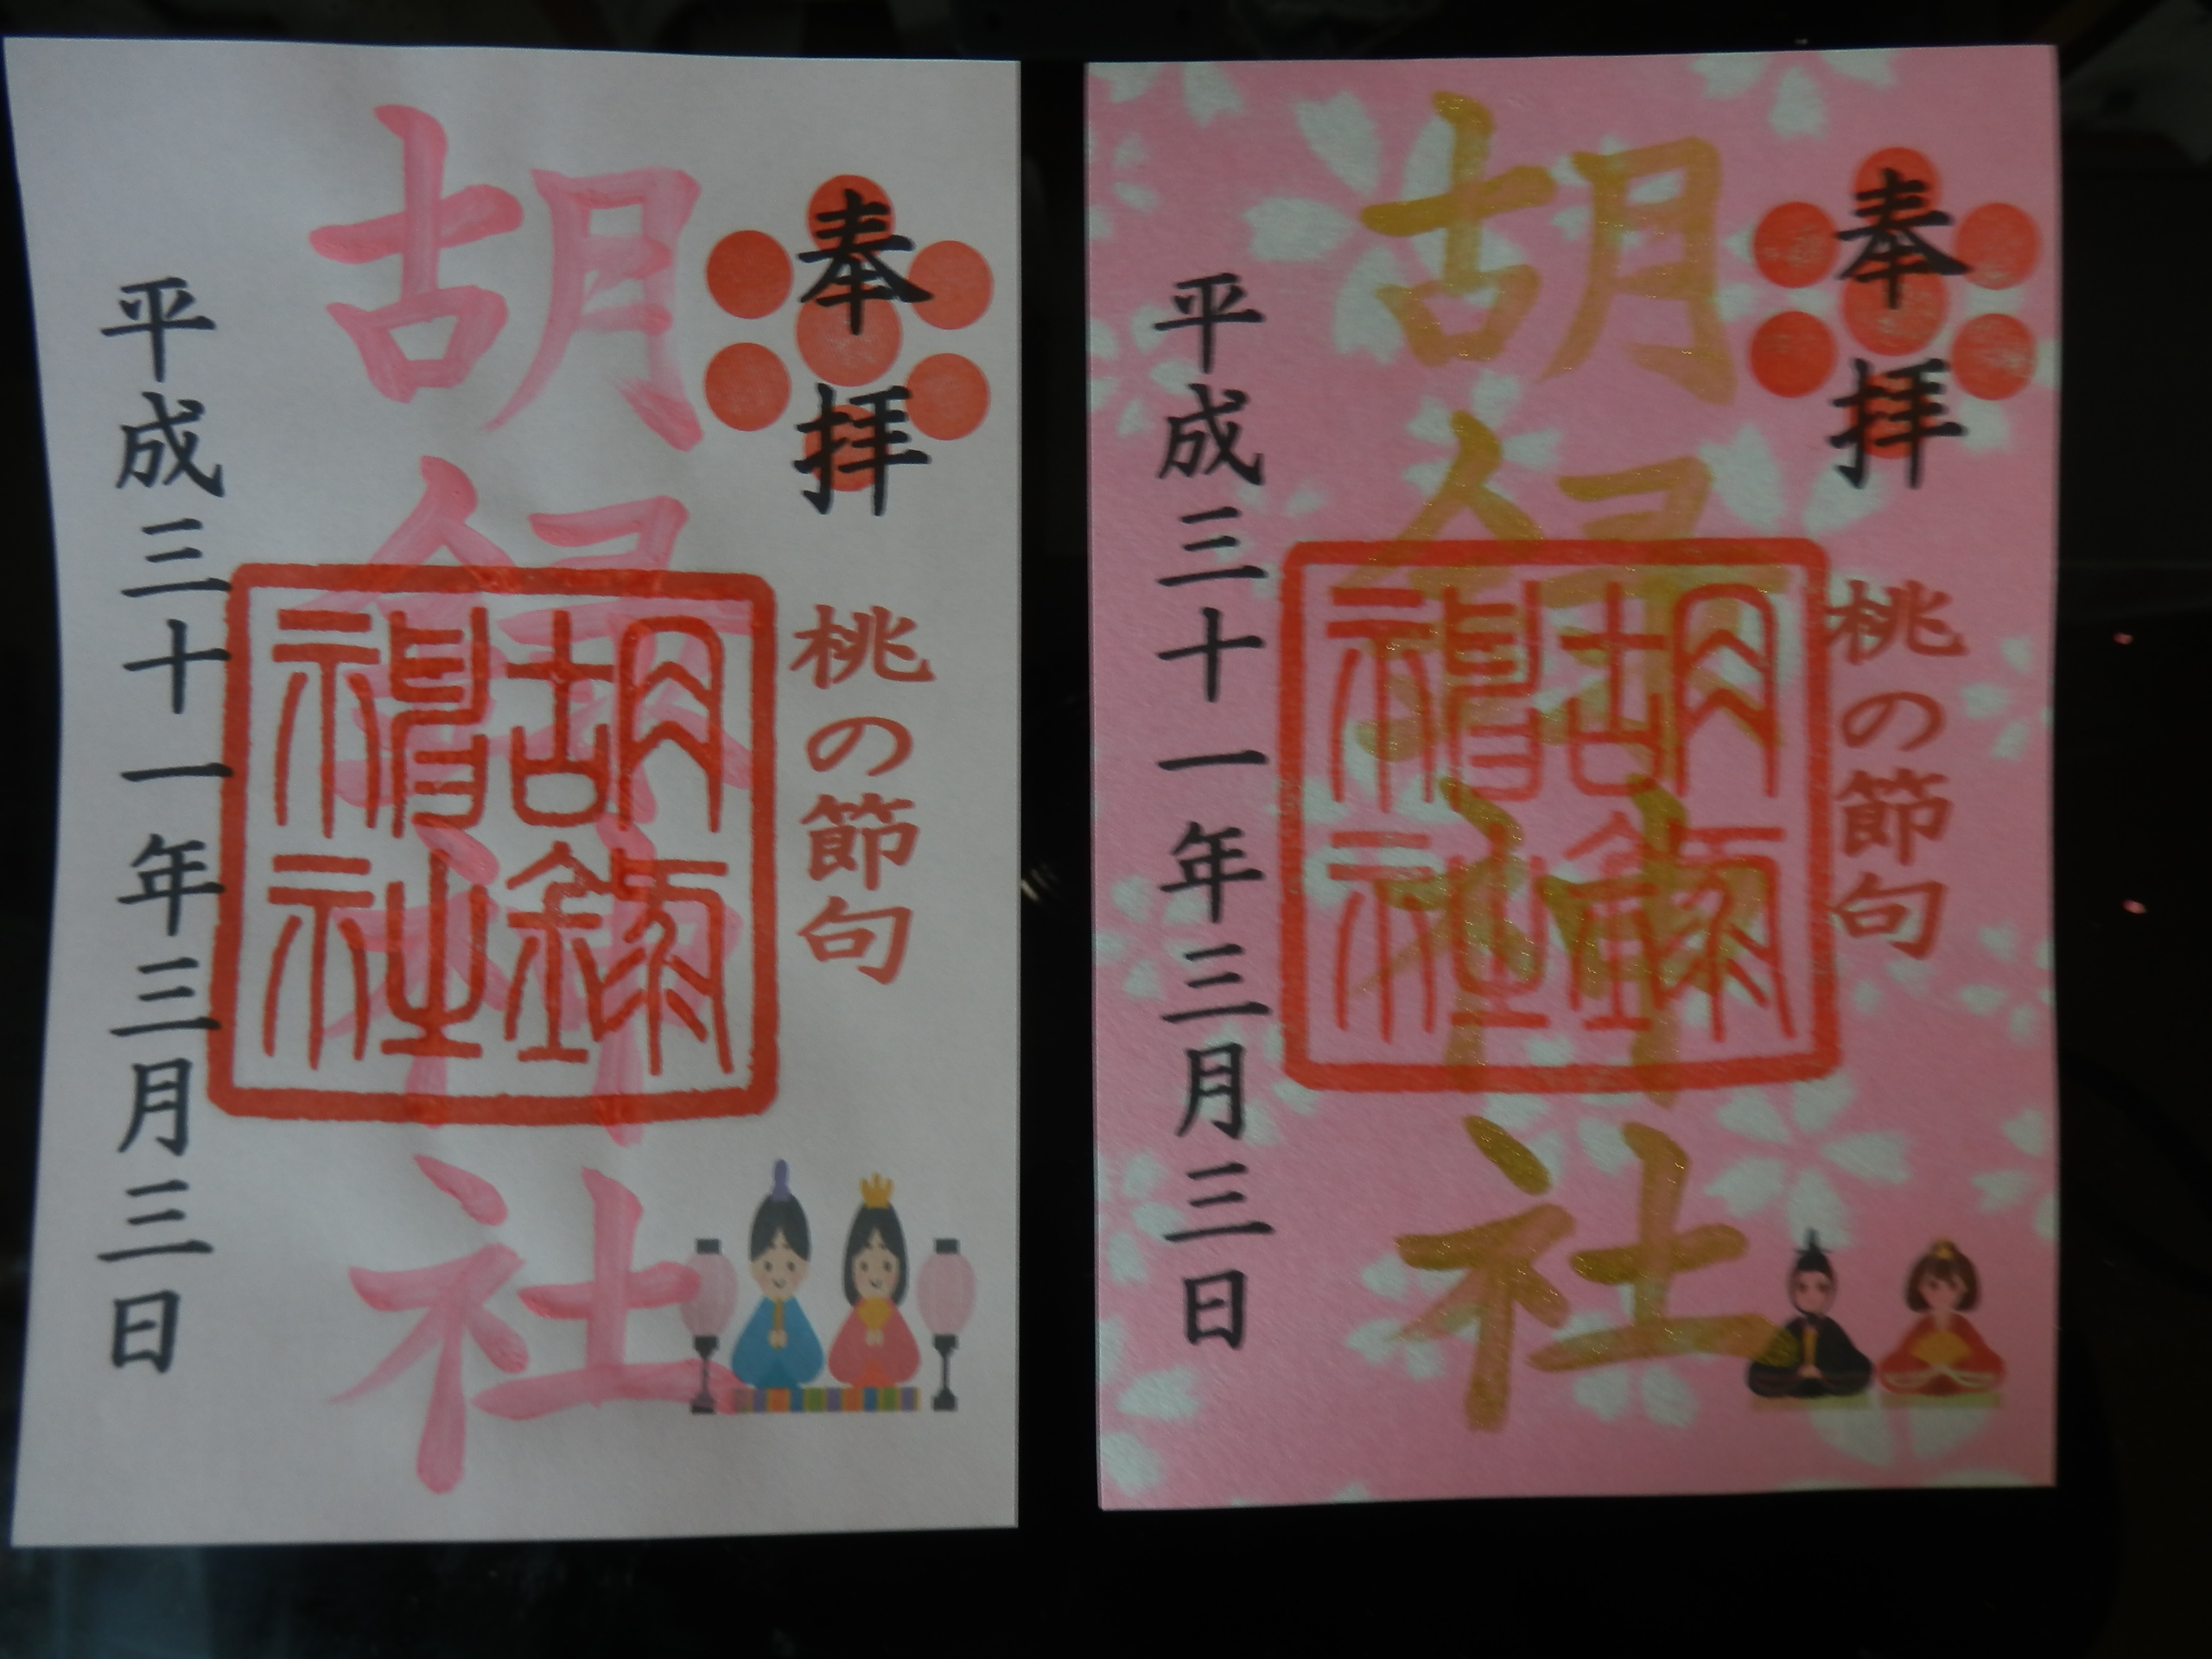 奉拝
桃の節句
胡録神社
胡録
神社
平成三十一年三月三日
奉拝
桃の節句
胡録神社
胡録
神社
平成三十一年三月三日